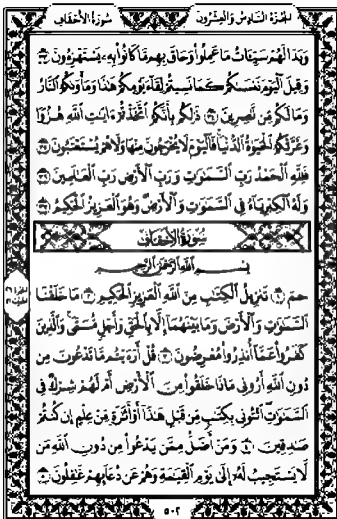 الجزء السادس والعشرون
سورة الأحقاف
وَبَدَا لَهُمْ سَيِّئَاتُ مَا عَمِلُوا وَحَاقَ بِهِم مَّا كَانُوا بِهِ يَسْتَهْزِءُونَ ٣٣
وَقِيلَ الْيَوْمَ نَنسَاكُمْ كَمَا نَسِيتُمْ لِقَاءَ يَوْمِكُمْ هَذَا وَمَأْوَاكُمُ النَّارُ
وَمَا لَكُم مِّن نَّاصِرِينَ ٣٤ ذَلِكُم بِأَنَّكُمُ اتَّخَذْتُمْ ءَايَاتِ اللَّهِ هُزُوًا
وَغَرَّتْكُمُ الْحَيَوٰةُ الدُّنْيَا فَالْيَوْمَ لَا يُخْرَجُونَ مِنْهَا وَلَا هُمْ يُسْتَعْتَبُونَ ٣٥
فَلِلَّهِ الْحَمْدُ رَبِّ السَّمَٰوَٰتِ وَرَبِّ الْأَرْضِ رَبِّ الْعَٰلَمِينَ ٣٦
وَلَهُ الْكِبْرِيَاءُ فِي السَّمَٰوَٰتِ وَالْأَرْضِ وَهُوَ الْعَزِيزُ الْحَكِيمُ ٣٧
سورة الأحقاف
بِسْمِ اللَّهِ الرَّحْمَٰنِ الرَّحِيمِ
حمٓ ١ تَنزِيلُ الْكِتَٰبِ مِنَ اللَّهِ الْعَزِيزِ الْحَكِيمِ ٢ مَا خَلَقْنَا
السَّمَٰوَٰتِ وَالْأَرْضَ وَمَا بَيْنَهُمَا إِلَّا بِالْحَقِّ وَأَجَلٍ مُّسَمًّى وَالَّذِينَ
كَفَرُوا عَمَّا أُنذِرُوا مُعْرِضُونَ ٣ قُلْ أَرَءَيْتُم مَّا تَدْعُونَ مِن
دُونِ اللَّهِ أَرُونِي مَاذَا خَلَقُوا مِنَ الْأَرْضِ أَمْ لَهُمْ شِرْكٌ فِي
السَّمَٰوَٰتِ ائْتُونِي بِكِتَٰبٍ مِّن قَبْلِ هَٰذَا أَوْ أَثَٰرَةٍ مِّنْ عِلْمٍ إِن كُنتُمْ
صَٰدِقِينَ ٤ وَمَنْ أَضَلُّ مِمَّن يَدْعُوا مِن دُونِ اللَّهِ مَن
لَّا يَسْتَجِيبُ لَهُ إِلَىٰ يَوْمِ الْقِيَٰمَةِ وَهُمْ عَن دُعَائِهِمْ غَٰفِلُونَ ٥
٥٠٢